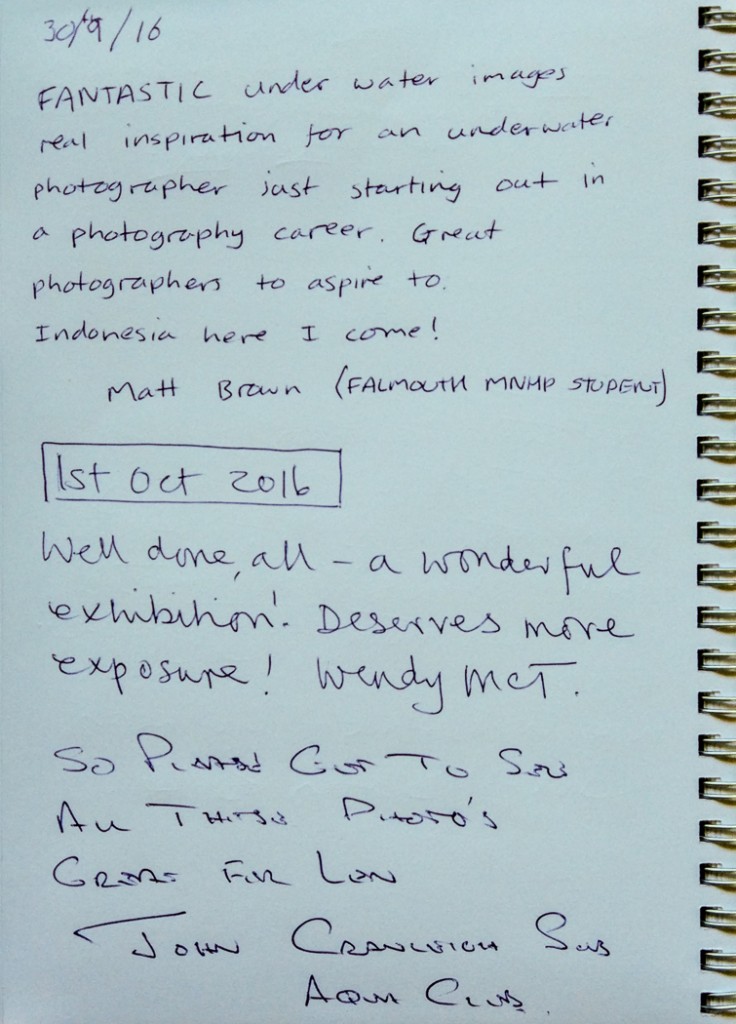 30/9/16
FANTASTIC under water images
real inspiration for an underwater
photographer just starting out in
a photography career. Great
photographers to aspire to.
Indonesia here I come!
Matt Brown (FALMOUTH MNHP STUDENT)
1st Oct 2016
Well done, all - a wonderful
exhibition! Deserves more
exposure! Wendy McT.
So Please Got To See
All These Photo's
Great For Len
John Cranleigh Sub
Aqua Club.